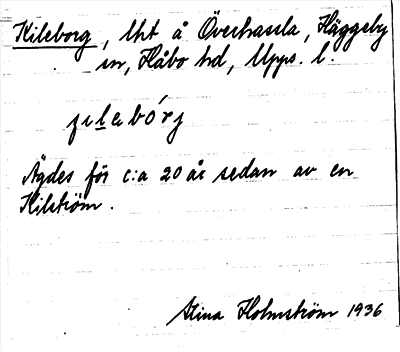 Kileborg, lht å Överhassla, Häggeby
sn, Håbo hd, Upps. l.
Ägdes för c:a 20 år sedan av en
Kilström.
Stina Holmström 1936